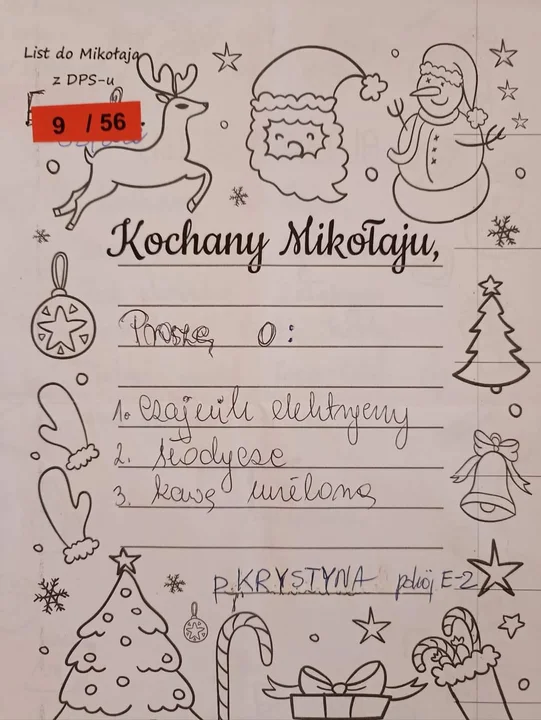 List do Mikołaja
z DPS-u
9 / 56
Kochany Mikołaju,
Proszę o:
1. czajnik elektryczny
2. słodycze
3. kawę mieloną
p. KRYSTYNA pokój E-2